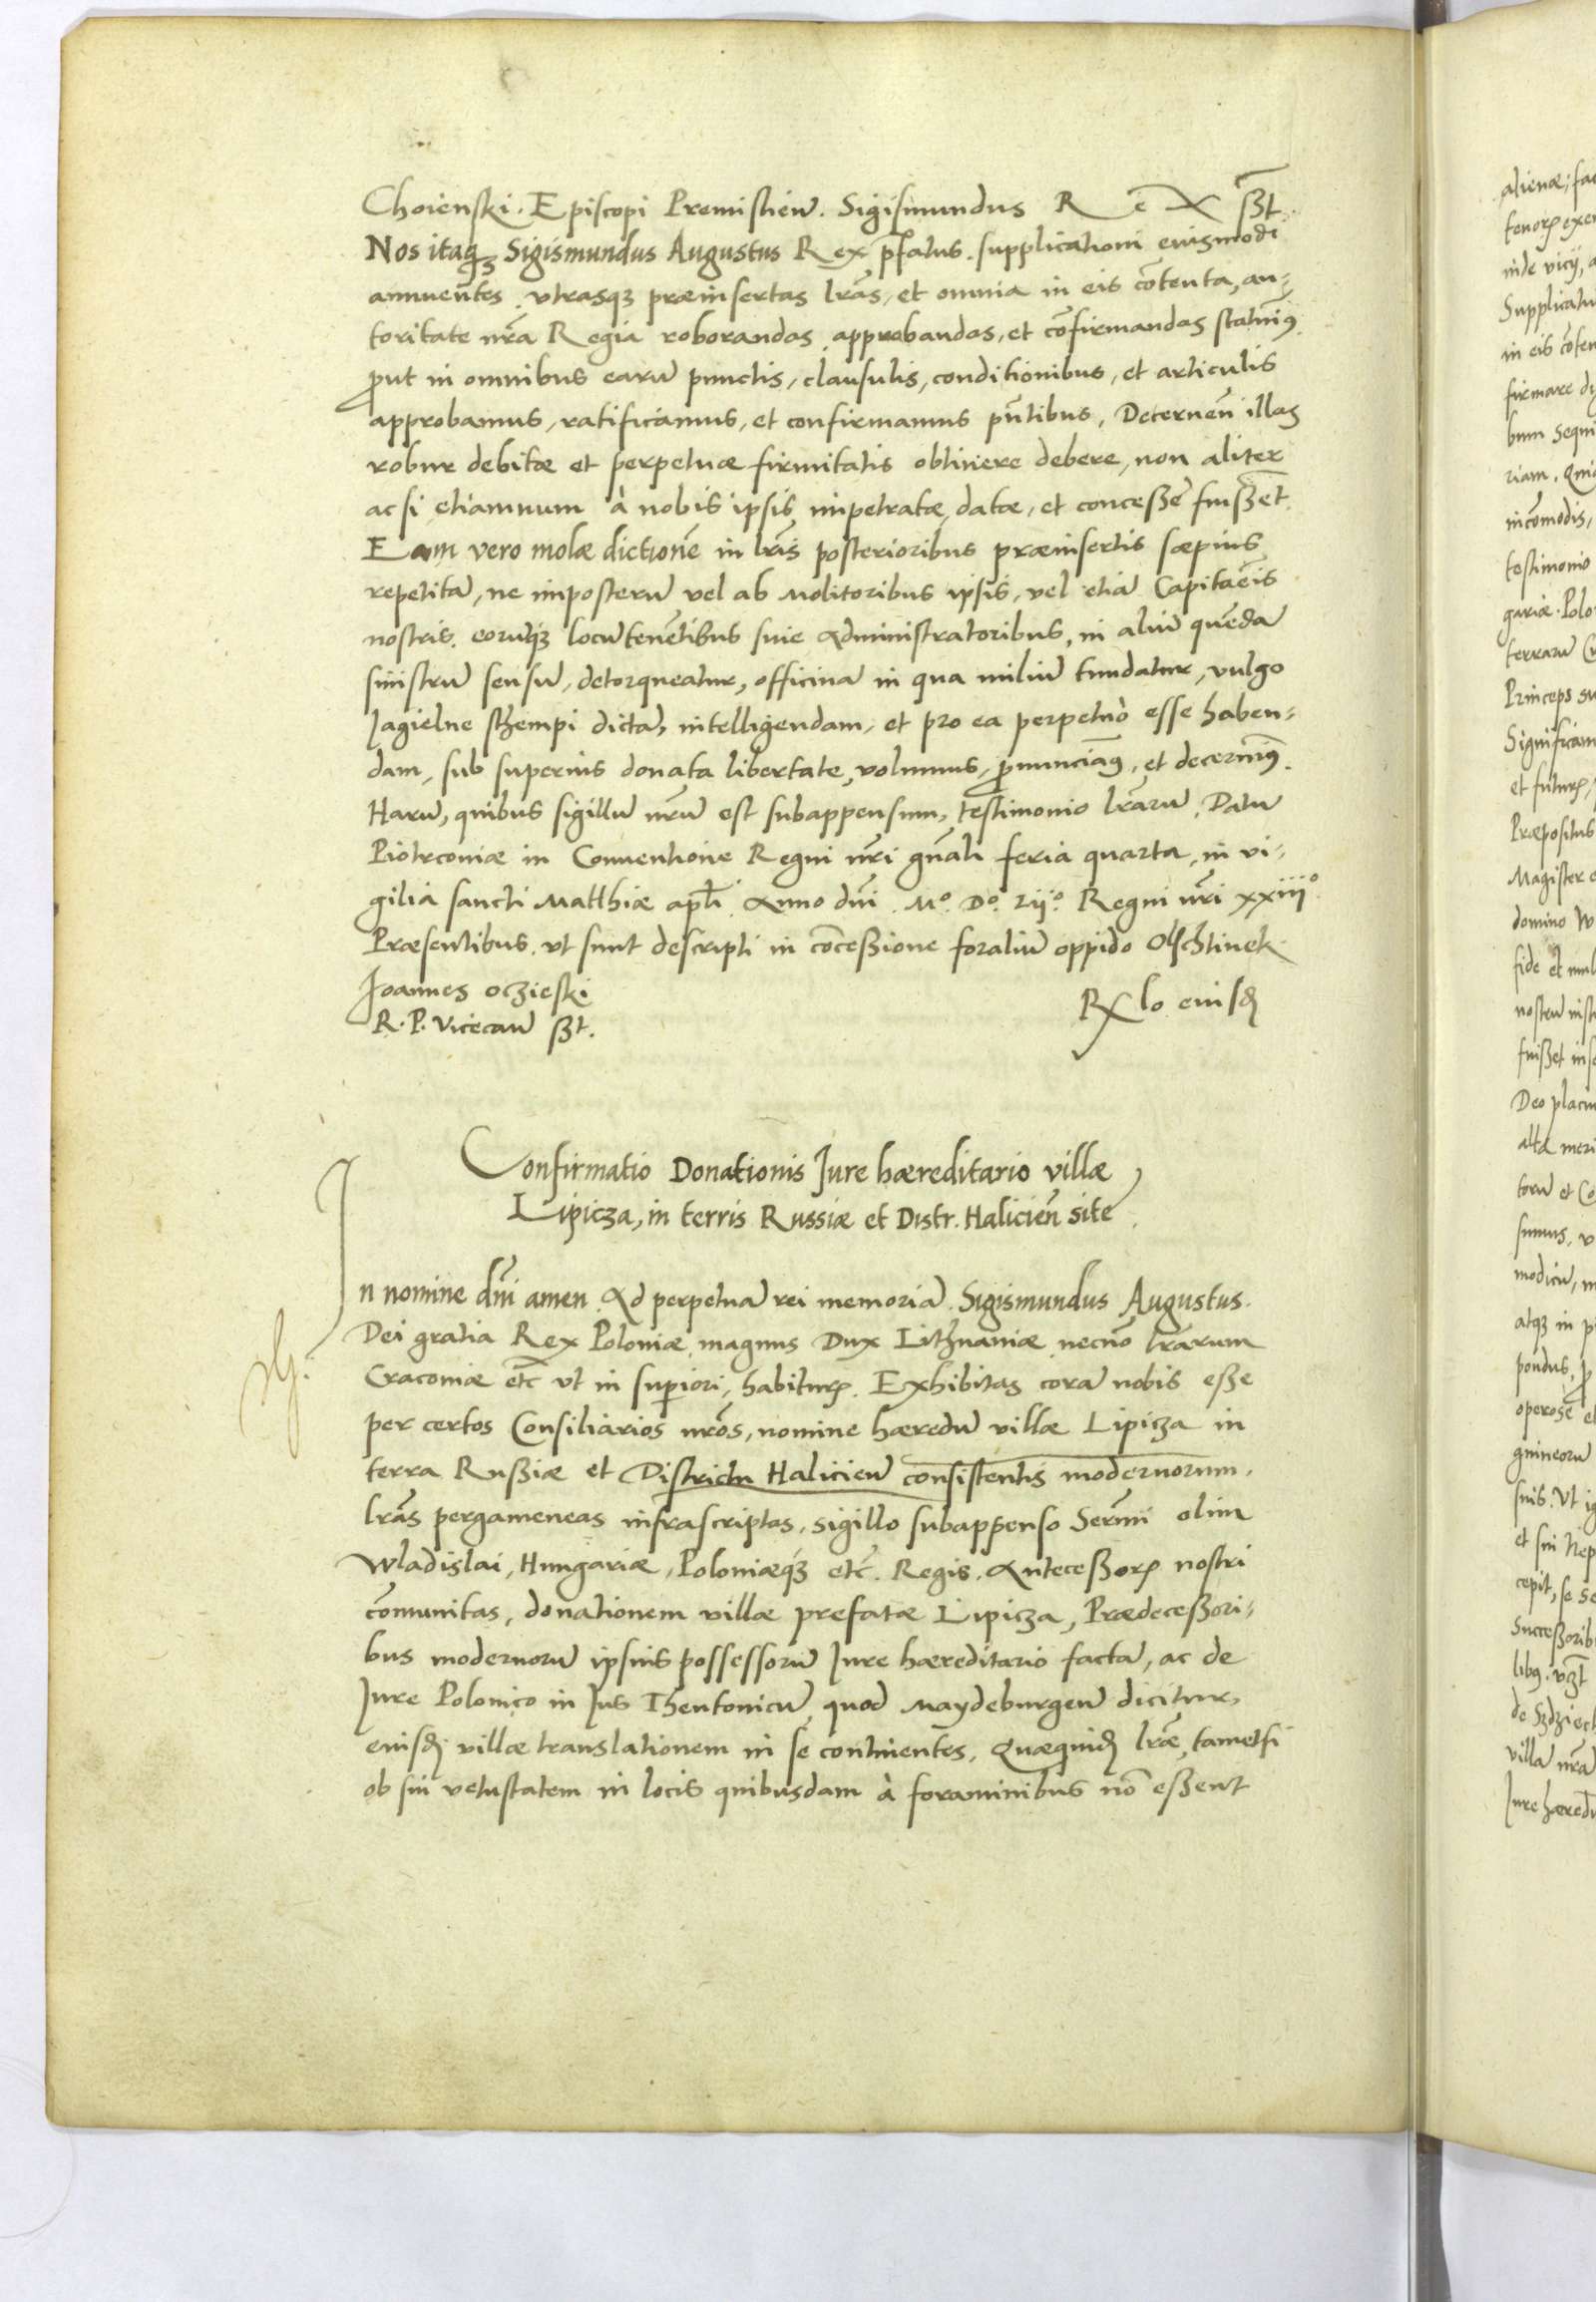 Choienski. Episcopi Premislien̄. Sigismundus Rex sszt.
Nos itaqꝫ Sigismundus Augustus Rex p̄fatus. supplicationi eiusmodi
annuentes. vtrasqꝫ præinsertas lr̄as, et omnia in eis cōtenta, au-
toritate nr̄a Regia roborandas, approbandas, et cōfirmandas statuim9.
ꝓut in omnibus earū punctis, clausulis, conditionibus, et articulis
approbamus, ratificamus, et confirmamus pn̄tibus, Decernen̄ illas
robur debitæ et perpetuæ firmitatis obtinere debere, non aliter
ac si etiamnum à nobis ipsis impetratæ, datæ, et conceßæ fuißēt.
Eam vero molæ dictionē in lr̄is posterioribus præinsertis sæpius
repetitā, ne imposterū vel ab Molitoribus ipsis, vel etiā Capitan̄eis
nostris. eorūqꝫ locūtenētibus siue Administratoribus, in aliū quēdā
sinistrū sensū, detorqueatur, officina in qua miliū tundatur, vulgo
Jagielne sthempi dictā, intelligendam, et pro ea perpetuò esse haben-
dam, sub superius donata libertate, volumus, ꝓnunciam9, et decernim9.
Harū, quibus sigillū nr̄um est subappensum, testimonio lr̄arū. Datū
Piotrconiæ in Conuentione Regni nr̄i gn̄ali feria quarta, in vi-
gilia sancti Matthiæ apl̄i. Anno dn̄i. Mº. Dº. Lijº. Regni nr̄i xxiijº.
Præsentibus. vt sunt descripti in cōceßione foraliū oppido Olschtinek
Joannes Oczieski
R. P. Vicecan̄ sszt.
Rlo eiusd
Confirmatio Donationis Jure hæreditario villæ
Lipicza, in terris Russiæ et Distr. Halicien̄ site
In nomine dn̄i amen. Ad perpetuā rei memoriā. Sigismundus Augustus.
Dei gratia Rex Poloniæ, magnus Dux Lithuaniæ, necnō trarum
Cracoviæ etc̄ vt in superiori, habiturꝫ. Exhibitas corā nobis eße
per certos Consiliarios nr̄os, nomine hæredū villæ Lipicza in
terra Rußiæ et Districtu Halicien̄ consistentis modernorum,
lr̄as pergameneas infrascriptas, sigillo subappenso Serm̄i olim
Wladislai, Hungariæ, Poloniæqꝫ etc̄. Regis. Anteceßorꝫ nostri
cōmunitas, donationem villæ prefatæ Lipicza, Prædeceßori-
bus modernorū ipsius possessorū Jure hæreditario factā, ac de
Jure Polonico in Jus Theutonicū, quod Maydeburgen̄ dicitur,
eiusd villæ translationem in se continentes. Quæquid lr̄æ, tametsi
ob sui vetustatem in locis quibusdam à foraminibus nō eßent